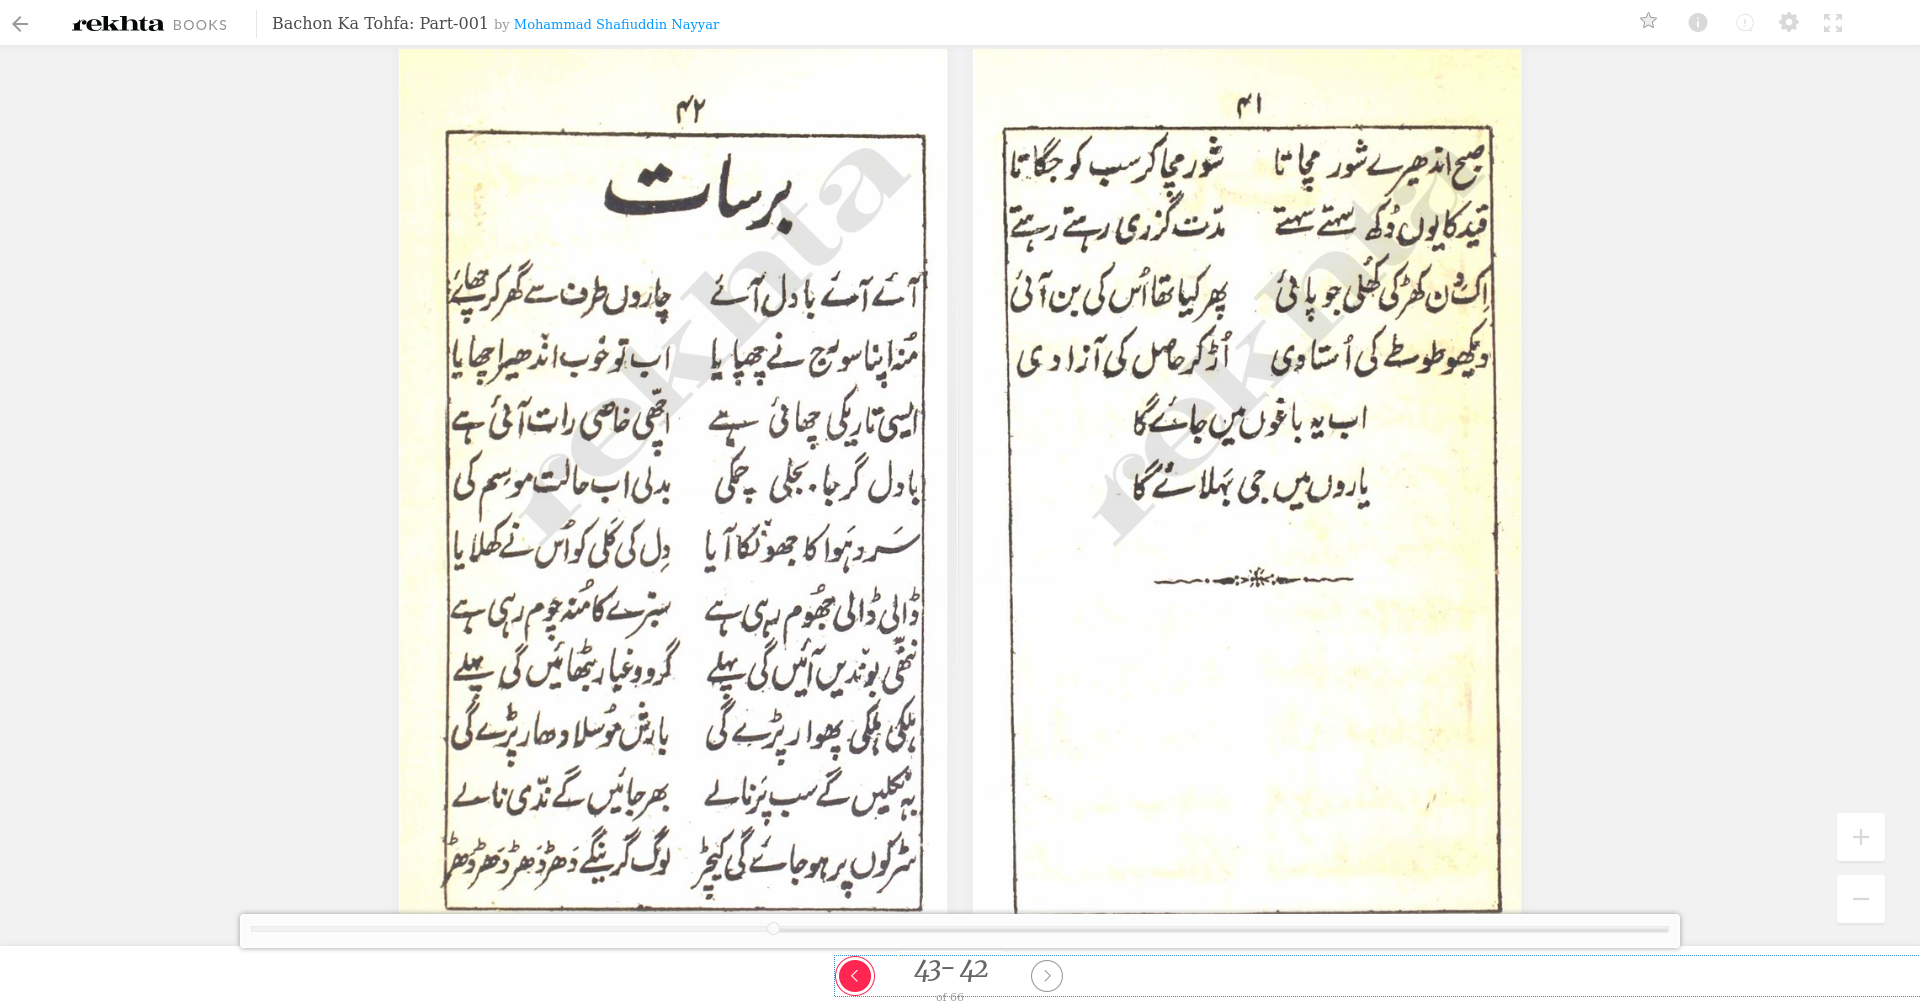 rekhta BOOKS Bachon Ka Tohfa: Part-001 by Mohammad Shafiuddin Nayyar
۴۱
صبح اندھیرے شور مچاتا شور مچا کر سب کو جگاتا
قید کا یوں دُکھ سہتے سہتے مدّت گزری رہتے رہتے
اِک دن کھڑکی کھُلی جو پائی پھر کیا تھا اُس کی بن آئی
دیکھو طوطے کی اُستادی اُڑ کر حاصل کی آزادی
اب یہ باغوں میں جائے گا
یاروں میں جی بَہلائے گا
rekhta
۴۲
برسات
آئے آئے بادل آئے چاروں طرف سے گھر کر چھائے
مُنہ اپنا سورج نے چھپایا اب تو خوب اندھیرا چھایا
ایسی تاریکی چھائی ہے اچّھی خاصی رات آئی ہے
بادل گرجا۔ بجلی چمکی بدلی اب حالت موسِم کی
سَرد ہَوا کا جھونکا آیا دِل کی کَلی کو اُس نے کھلایا
ڈالی ڈالی جھُوم رہی ہے سبزے کا مُنہ چوم رہی ہے
ننّھی بوندیں آئیں گی پہلے گرد و غبار بٹھائیں گی پہلے
ہلکی ہلکی پھوار پڑے گی بارش مُوسلا دھار پڑے گی
بہ نکلیں گے سب پَرنالے بھر جائیں گے ندّی نالے
سڑکوں پر ہو جائے گی کیچڑ لوگ گرینگے دَھڑ دَھڑ دَھڑ دَھڑ
rekhta
43- 42
of 66